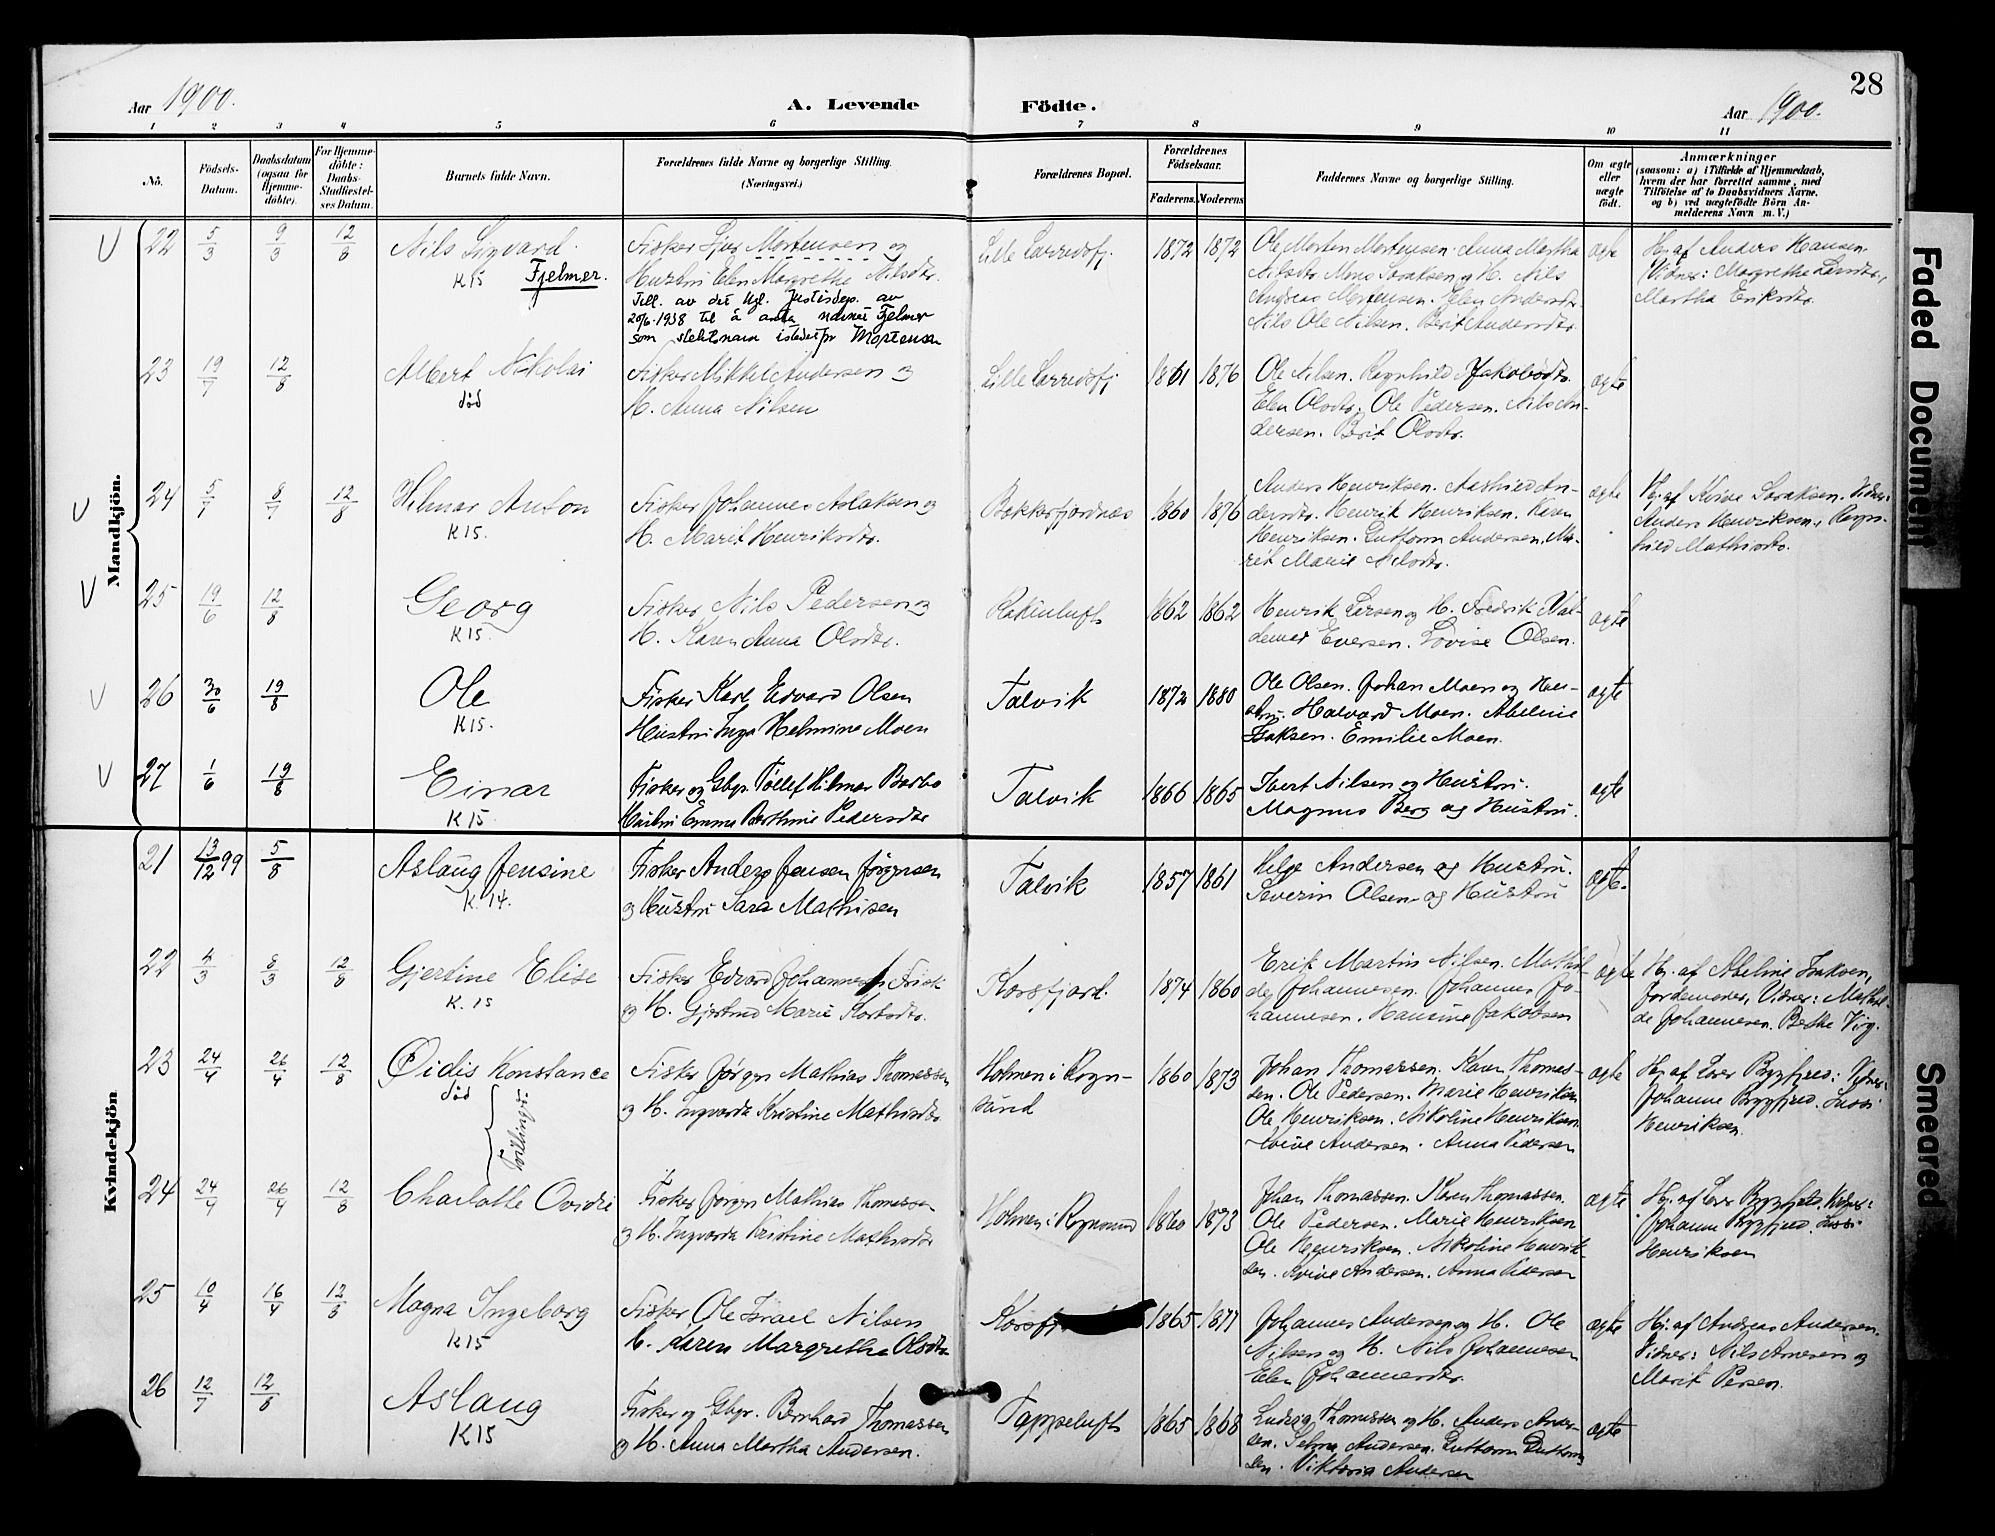 28
Aar 1900.
A. Levende
Födte.
Aar 1900.
1 2 3 4 5 6 7 8 9 10 11
No.
Födsels-
Datum.
Daabsdatum
(ogsaa for
Hjemme-
döbte).
For Hjemme-
döbte:
Daabs-
Stadfæstel-
ses Datum.
Barnets fulde Navn.
Forældrenes fulde Navne og borgerlige Stilling.
(Næringsvei.)
Forældrenes Bopæl.
Forældrenes
Födselsaar.
Faderens. Moderens
Faddernes Navne og borgerlige Stilling.
Om ægte
eller
uægte
födt.
Anmærkninger
(saasom: a) i Tilfælde af Hjemmedaab,
hvem der har forrettet samme, med
Tilföielse af to Daabsvidners Navne,
og b) ved uægtefödte Börn An-
melderens Navn m. V.)
Mandkjön.
22 5/3 9/3 12/8 Nils Sigvard.
K15 Fjelmer.
Fisker Mortensen og
Hustru Elen Margrethe Nilsdtr.
Till. av det Kgl. Justisdep. av
20/6-1938 til å anta navnet Fjelmer
som slektsnavn istedetfor Mortensen
Lille Lerredsfj. 1872 1872
Ole Morten Mortensen. Anna Martha
Nilsdtr. og H. Nils
Andreas Mortensen. Elen Andersdtr.
Nils Ole Nilsen. Berit Andersdtr.
ægte
Hj. af Anders Hansen.
Vidner: Margrethe
Martha Eriksdtr.
23 19/7 12/8 Albert Nikolai
død
Fisker Mikkel Andersen og
H. Anna Nilsen
Lille Lerredsfj 1861 1876
Ole Nilsen. Ragnhild Jakobsdtr.
Elen Olsdtr. Ole Pedersen. Nils An-
dersen. Berit Olsdtr.
ægte
24 5/7 8/7 12/8 Hilmar Anton
K15.
Fisker Johannes Aslaksen og
H. Marit Henriksdtr.
Bekkerfjordnæs 1860 1876
Anders Henriksen. An-
dersdtr. Henrik Henriksen. Karen
Henriksen. Guttorm Andersen. Ma-
rit Marie Nilsdtr.
ægte
Hj. af Vidner:
Anders Henriksen, Ragn-
hild Mathisdtr.
25 19/6 12/8 Georg
K15.
Fisker Nils Pedersen og
H. Karen Anna Olsdtr.
1862 1862
Henrik Larsen og H. Fredrik Val-
demar Eversen. Lovise Olsen.
ægte
26 30/6 19/8 Ole
K15.
Fisker Karl Edvard Olsen
Hustru Inga Helmine Moen
Talvik 1872 1880
Ole Olsen. Johan Moen og Hu-
stru. Halvard Moen. Abeline
Isaksen. Emilie Moen.
ægte
27 1/6 19/8 Einar
K15.
Fisker og Gbgr. Tollef Hilmar Barbo
Hustru Emma Berthine Pedersdtr
Talvik 1866 1865
Ivert Nilsen og Hustru.
Magnus Berg og Hustru.
ægte
Kvindekjön
21 13/12 99 5/8 Aslaug Jensine
K. 14.
Fisker Anders Jensen Jørgensen
og Hustru Sara Mathisen
Talvik 1857 1861
Helge Andersen og Hustru.
Severin Olsen og Hustru
ægte.
22 4/3 8/3 12/8 Gjertine Elise
K. 15
Fisker Edvard Johannes Frisk
og H. Gjertrud Marie
Korsfjord. 1874 1860
Erik Martin Nilsen. Mathil-
de Johannesen. Johannes Jo-
hannesen. Hansine Jakobsen
ægte
Hj. af Abeline Isaksen,
Jordemoder, Vidner: Mathil-
de Johannesen. Virg.
23 24/4 26/4 12/8 Øidis Konstance
død
Tvillinger.
Fisker Jørgen Mathias Thomassen
og H. Ingvarda Kristine Mathisdtr.
Holmen i Rogn-
sund
1860 1873
Johan Thomassen. Karen Thomas-
sen. Ole Pedersen. Marie Henriksen
Ole Henriksen. Nikoline Henriksen
Andersen. Anna Pedersen
ægte
Hj. af Vidner:
Johanne
Henriksen.
24 24/4 26/4 12/8 Charlotte Ovidie
Fisker Jørgen Mathias Thomassen
og H. Ingvarda Kristine Mathisdtr
Holmen i Rognsund 1860 1873
Johan Thomassen. Karen Thomassen.
Ole Pedersen. Marie Henriksen
Ole Henriksen. Nikoline Henrik-
sen. Andersen. Anna Pedersen
ægte
Hj. af Vidner:
Johanne
Henriksen
25 10/4 16/4 12/8 Magna Ingeborg
K15
Fisker Ole Israel Nilsen
H. Karen Margrethe Olsdtr.
Korsfj 1865 1877
Johannes Andersen og H. Ole
Nilsen og H. Nils Johannesen
Elen Johannesdtr.
ægte
Hj. af Andreas Andersen.
Vidner: Nils Arnesen og
Marit Persen.
26 12/7 12/8 Aslaug
K15
Fisker og Gbgr. Bernhard Thomassen
og H. Anna Martha Andersen.
Tappeluft 1865 1868
Ludvig Thomassen og H. Anders Ander-
sen. Selma Andersen. Guttorm Guttorm-
sen. Viktoria Andersen
ægte
Faded Document
Smeared